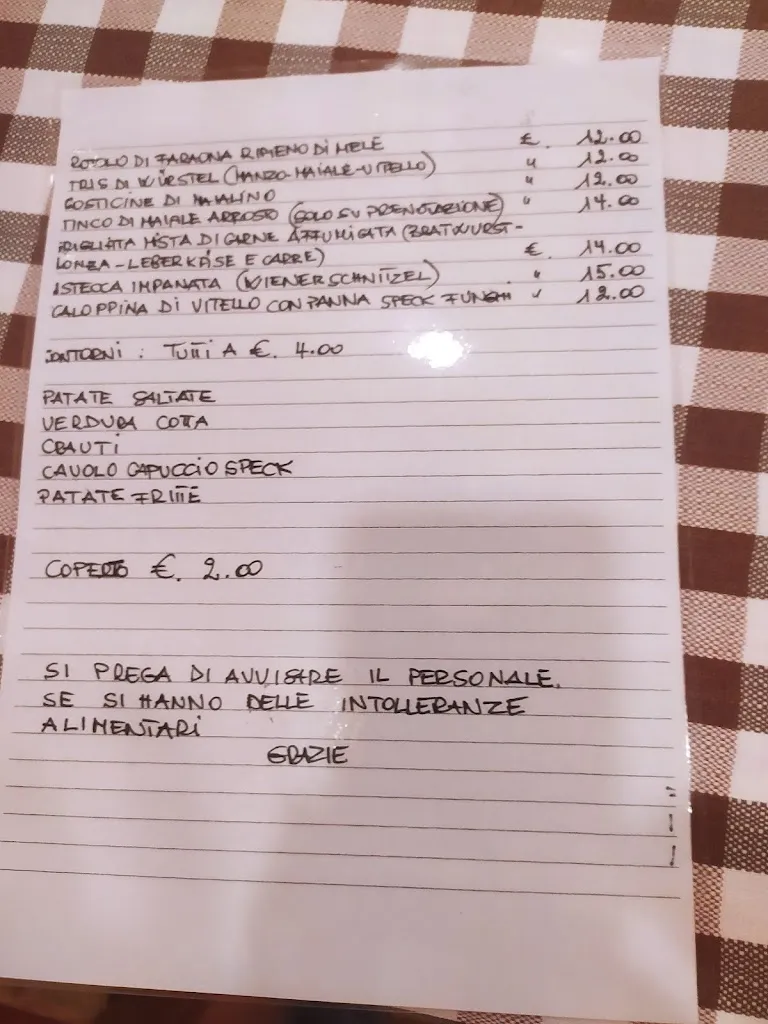 ROTOLO DI FARAONA RIPIENO DI MELE €. 12.00
TRIS DI WÜRSTEL (MANZO-MAIALE-VITELLO) " 12.00
COSTICINE DI MAIALINO " 12.00
TINCO DI MAIALE ARROSTO (SOLO SU PRENOTAZIONE) " 14.00
GRIGLIATA MISTA DI CARNE AFFUMICATA (BRATWURST-
LONZA-LEBERKÄSE E CARRE) €. 14.00
ISTECCA IMPANATA (WIENERSCHNITZEL) " 15.00
CALOPPINA DI VITELLO CON PANNA SPECK FUNGHI " 12.00
CONTORNI : TUTTI A €. 4.00
PATATE SALTATE
VERDURA COTTA
CRAUTI
CAVOLO CAPUCCIO SPECK
PATATE FRITTE
COPERTO €. 2.00
SI PREGA DI AVVISARE IL PERSONALE.
SE SI HANNO DELLE INTOLLERANZE
ALIMENTARI
GRAZIE